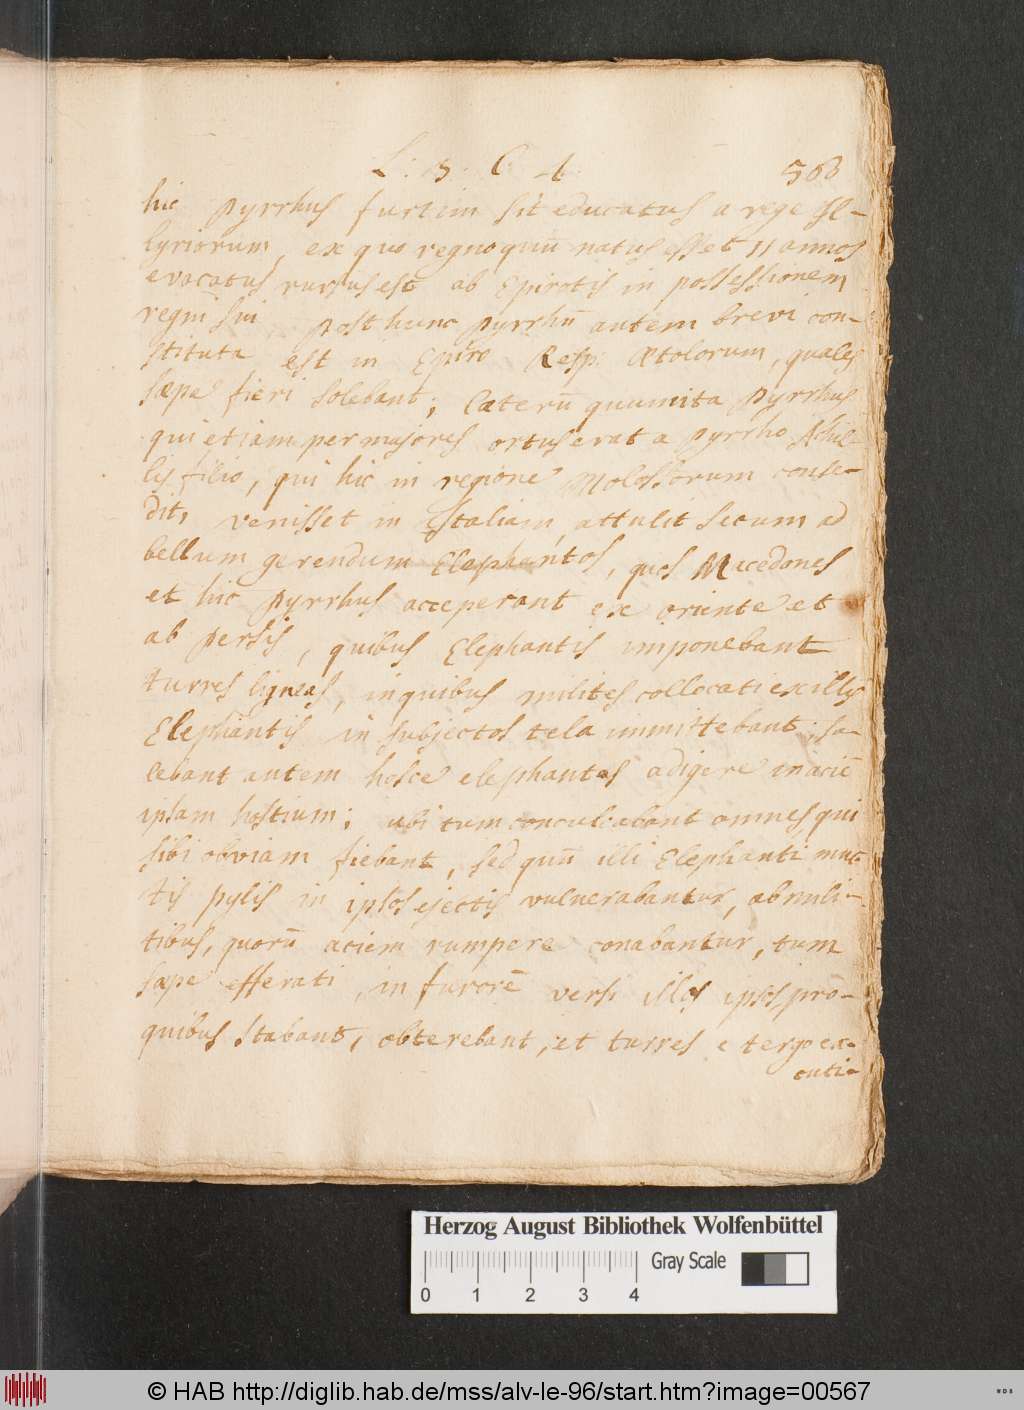 L: 3: C. 4. 568
hic Pyrrhus furtim sit educatus a rege Il-
lyriorum, ex quo regno quū natus esset 11 annos
evocatus rursus est ab Epirotis in possessionem
regni sui. Post hunc Pyrrhū autem brevi con-
stituta est in Epiro Resp: Ætolorum, quales
sæpe fieri solebant; Cæterū quum ita Pyrrhus
qui etiam per majores ortus erat a Pyrrho Achil-
lis filio, qui hic in regione Molossorum conse-
dit, venisset in Italiam, attulit secum ad
bellum gerendum Elephantos, quos Macedones
et hic Pyrrhus acceperant ex oriente et
ab Persis, quibus Elephantis imponebant
turres ligneas, in quibus milites collocati ex illis
Elephantis in subjectos tela immittebant; so-
lebant autem hosce elephantas adigere in aciē
ipsam hostium; ubi tum conculcabant omnes qui
sibi obviam fiebant, sed quū illi Elephanti mul-
tis pylis in ipsos ejectis vulnerabantur, ab mili-
tibus, quorū aciem rumpere conabantur, tum
sæpe efferati, in furorē versi illos ipsos, prō-
quibus stabant, obterebant, et turres e tergo ex-
cuti-
Herzog August Bibliothek Wolfenbüttel
Gray Scale
0 1 2 3 4
© HAB http://diglib.hab.de/mss/alv-le-96/start.htm?image=00567